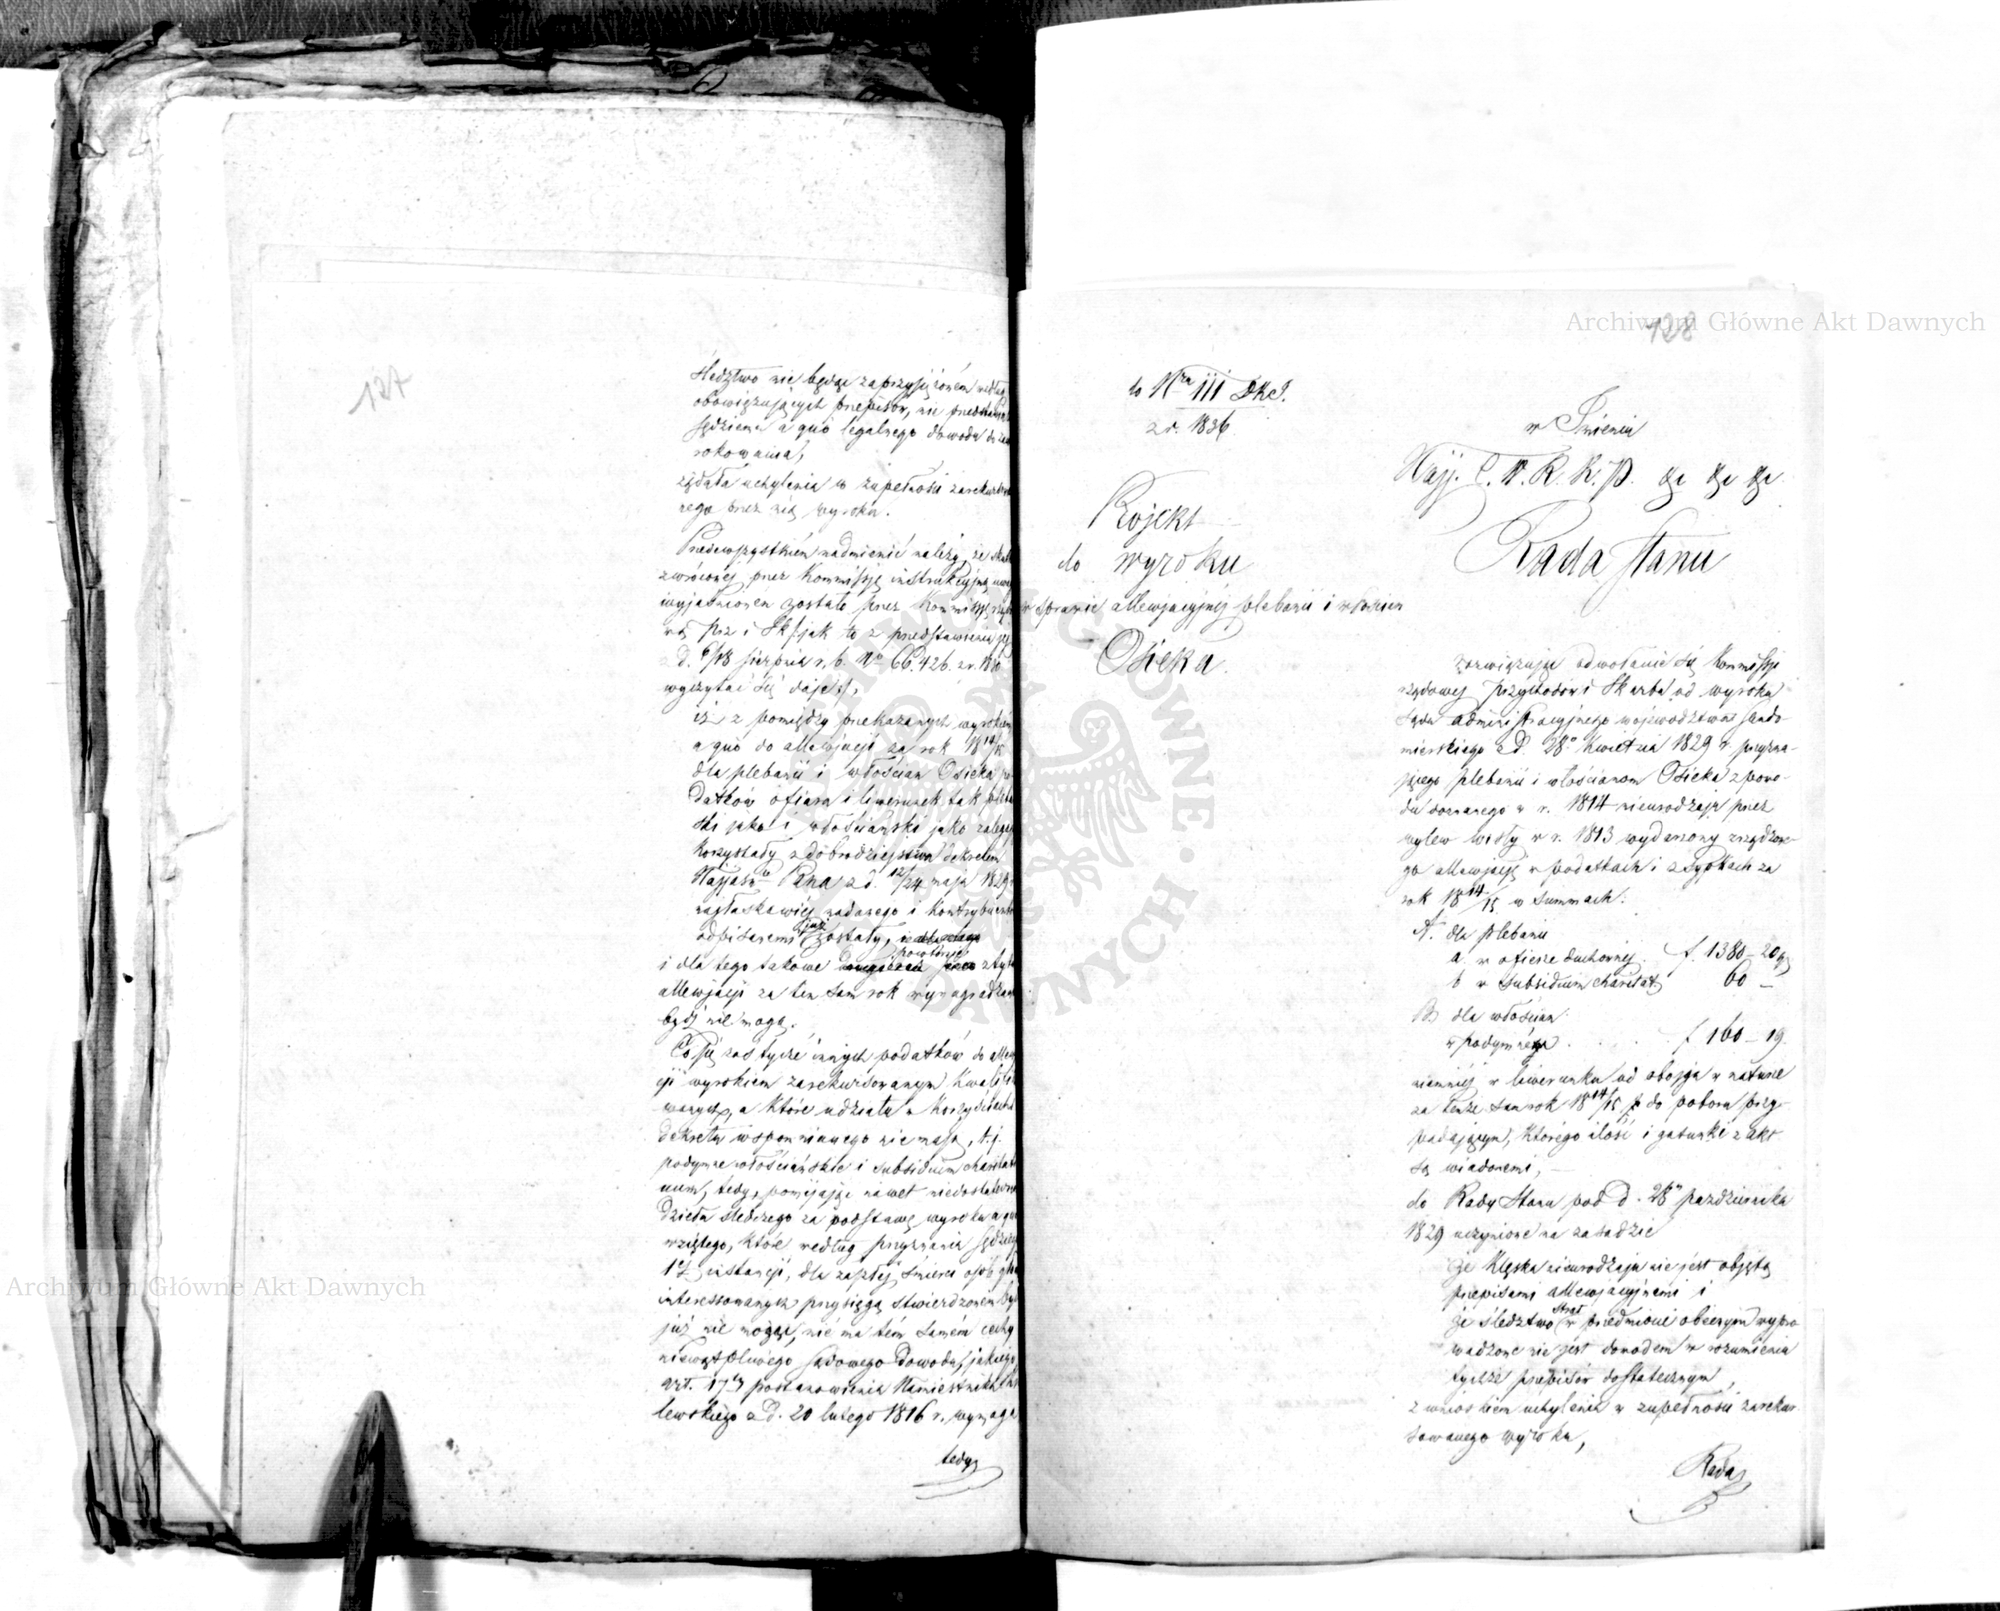 127
śledztwo nie będąc zaprzysiężoném według
obowiązujących przepisów, nie przedstawia
sędziemu a quo legalnego dowodu do za
rokowania,
żądała uchylenia w zupełności zarekurso
nego przez nią wyroku.
Przedewszystkiém nadmienić należy, że skut
zwróconéj przez Kommissję instrukcyjną uwa
wyjaśnionem zostało przez Kommissję rząd
wą prz i Sk /jak to z przedstawienia jéj
z d. 6/18 sierpnia r. b. No 66.426. z r. 1830
wyczytać się daje:/,
iż z pomiędzy przekazanych wyrokiem
a quo do allewjacji za rok 1814/15
dla plebanii i włościan Osieka po
datków ofiara i liwerunek tak pleba
ski jako i włościański jako zaległe
korzystały z dobrodziejstwa dekretem
Najjaśn. Pana z d. 12/24 maja 1829 r.
najłaskawiéj nadanego i kontrybuento
odpisanemi już zostały,
i dla tego takowe powtórnie z tytu
allewjacji za ten sam rok wynagradzan
być nie mogą.
Co się zaś tycze innych podatków do allew
cji wyrokiem zarekursowanym kwalifi
wanych, a które udziału w korzyściach
dekretu wspomnianego nie mają, t. j.
podymne włościańskie i subsidium charitati
vum, tedy, pomijając nawet niedostateczn
dzieła śledczego za podstawę wyroku a quo
wziętego, które według przyznania sędziego
1éj instancji, dla zaszłéj śmierci osób głó
interessowanych przysięgą stwierdzoném być
już nie mogąc, nie ma tém samém cechy
niewątpliwego sądowego dowodu, jakiego
art. 17ty postanowienia Namiestnika Kró
lewskiego z d. 20 lutego 1816 r. wymaga
tedy
128
do Nra III Dkc.
z r. 1836.
Projekt
do wyroku
w sprawie allewjacyjnéj plebanii i włościan
Osieka.
w Imieniu
Najj. C. W. R. K. P. &c &c &c
Rada Stanu
rozwiązując odwołanie się Kommissji
rządowej przychodów i Skarbu od wyroku
Sądu administracyjnego województwa Sando-
mierskiego z d. 28o Kwietnia 1829 r. przyzna-
jącego plebanii i włościanom Osieka z powo-
du doznanego w r. 1814 nieurodzaju przez
wylew wisły w r. 1813 wydarzony zrządzone-
go allewjacje w podatkach i zsypkach za
rok 1814/15 w summach:
A. dla plebanii
a w ofierze duchownéj . f. 1380 – 20 g
b w subsidium charitat. 60 –
B dla włościan:
w podymném . . . . f 160 – 19.
niemniéj w liwerunku od obojga w naturze
za tenże sam rok 1814/15 do poboru przy-
padającym, którego ilość i gatunki z akt
są wiadomemi, –
do Rady Stanu pod d. 28m października
1829 uczynione na zasadzie
że klęska nieurodzaju nie jest objętą
przepisami allewjacyjnemi i
że śledztwo strat w przedmiocie obecnym wypro
wadzone nie jest dowodem w rozumieniu
tychże przepisów dostatecznym,
z wnioskiem uchylenia w zupełności zarekur
sowanego wyroku,
Rada
Archiwum Główne Akt Dawnych
Archiwum Główne Akt Dawnych